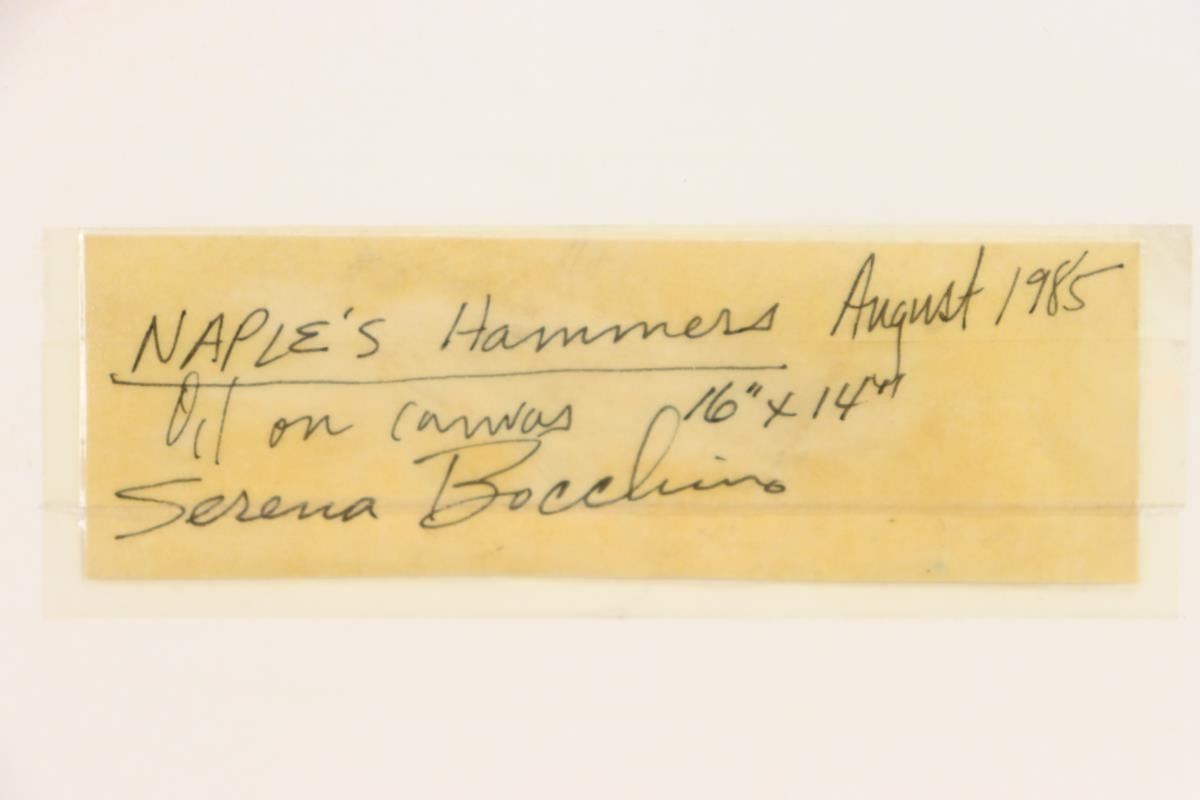 NAPLE'S Hammers August 1985
Oil on canvas 16" x 14"
Serena Bocchino